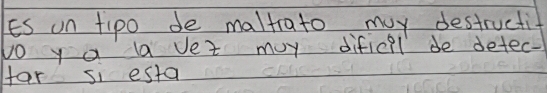 Es un tipo de maltrato muy destructi-
vo y a la vez muy dificil de detec-
tar si esta